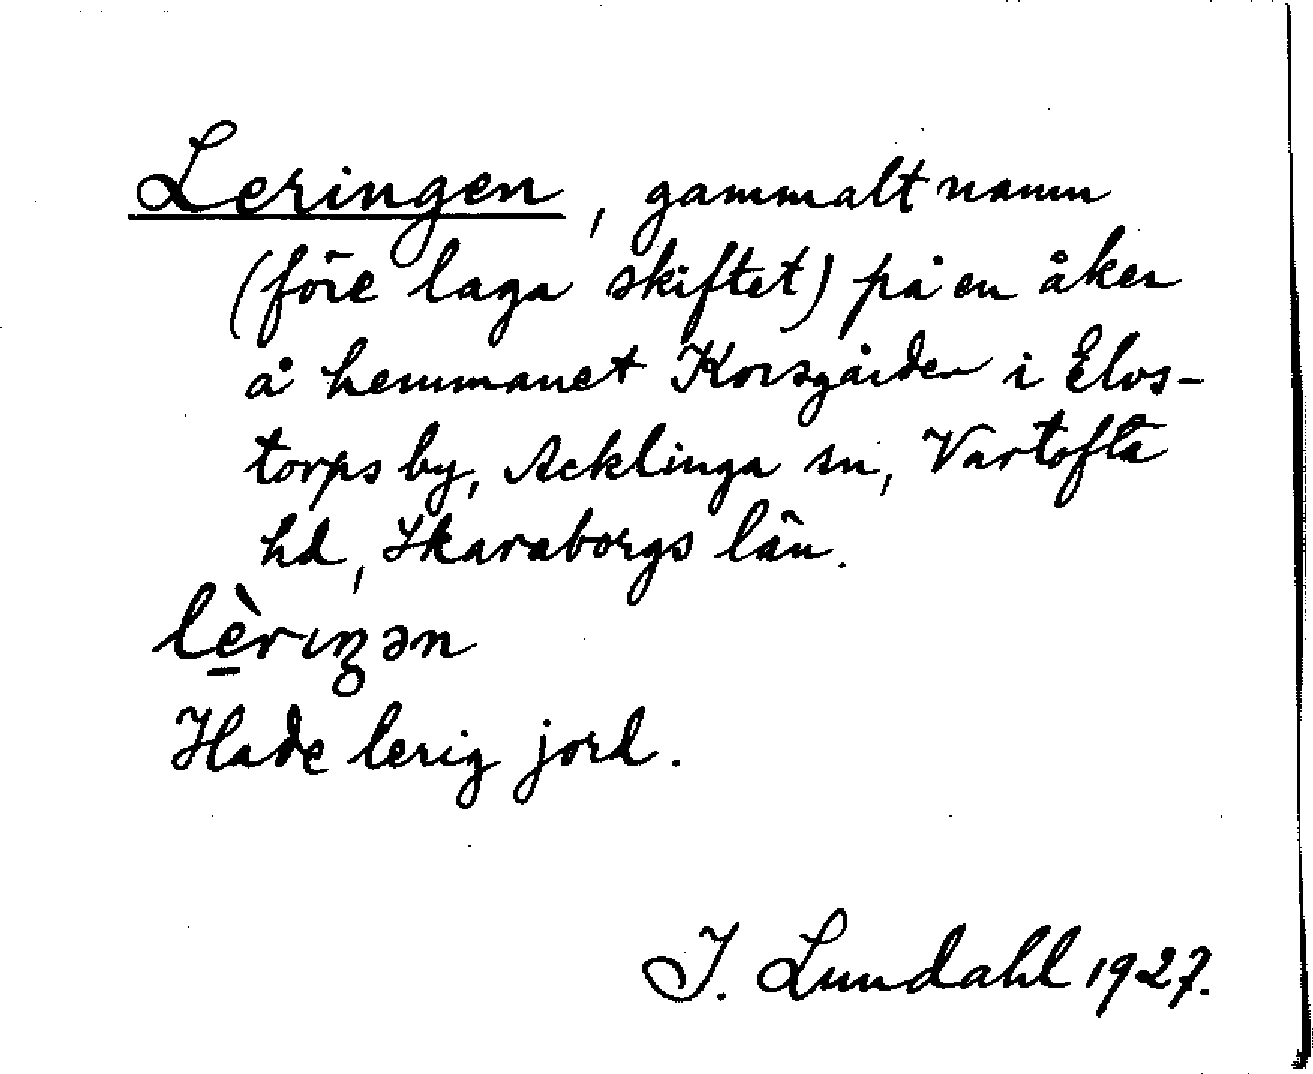 Leringen, gammalt namn
(före laga skiftet) på en åker
å hemmanet Korsgården i Elvs-
torps by, Acklinga sn, Vartofta
hd, Skaraborgs län.
lè̠rıŋən
Hade lerig jord.
I. Lundahl 1927.